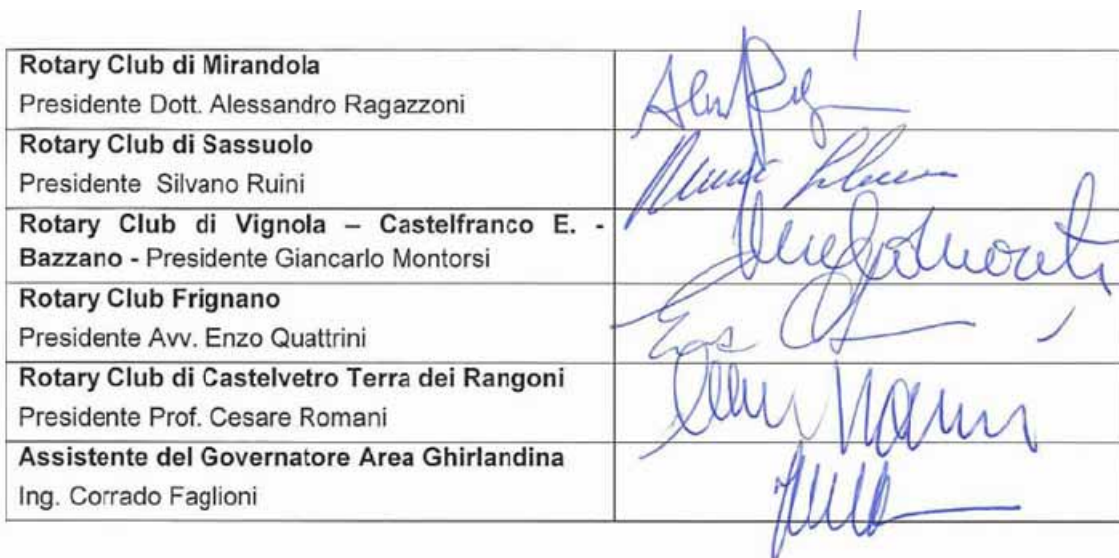 Rotary Club di Mirandola
Presidente Dott. Alessandro Ragazzoni
Rotary Club di Sassuolo
Presidente Silvano Ruini
Rotary Club di Vignola – Castelfranco E. -
Bazzano - Presidente Giancarlo Montorsi
Rotary Club Frignano
Presidente Avv. Enzo Quattrini
Rotary Club di Castelvetro Terra dei Rangoni
Presidente Prof. Cesare Romani
Assistente del Governatore Area Ghirlandina
Ing. Corrado Faglioni